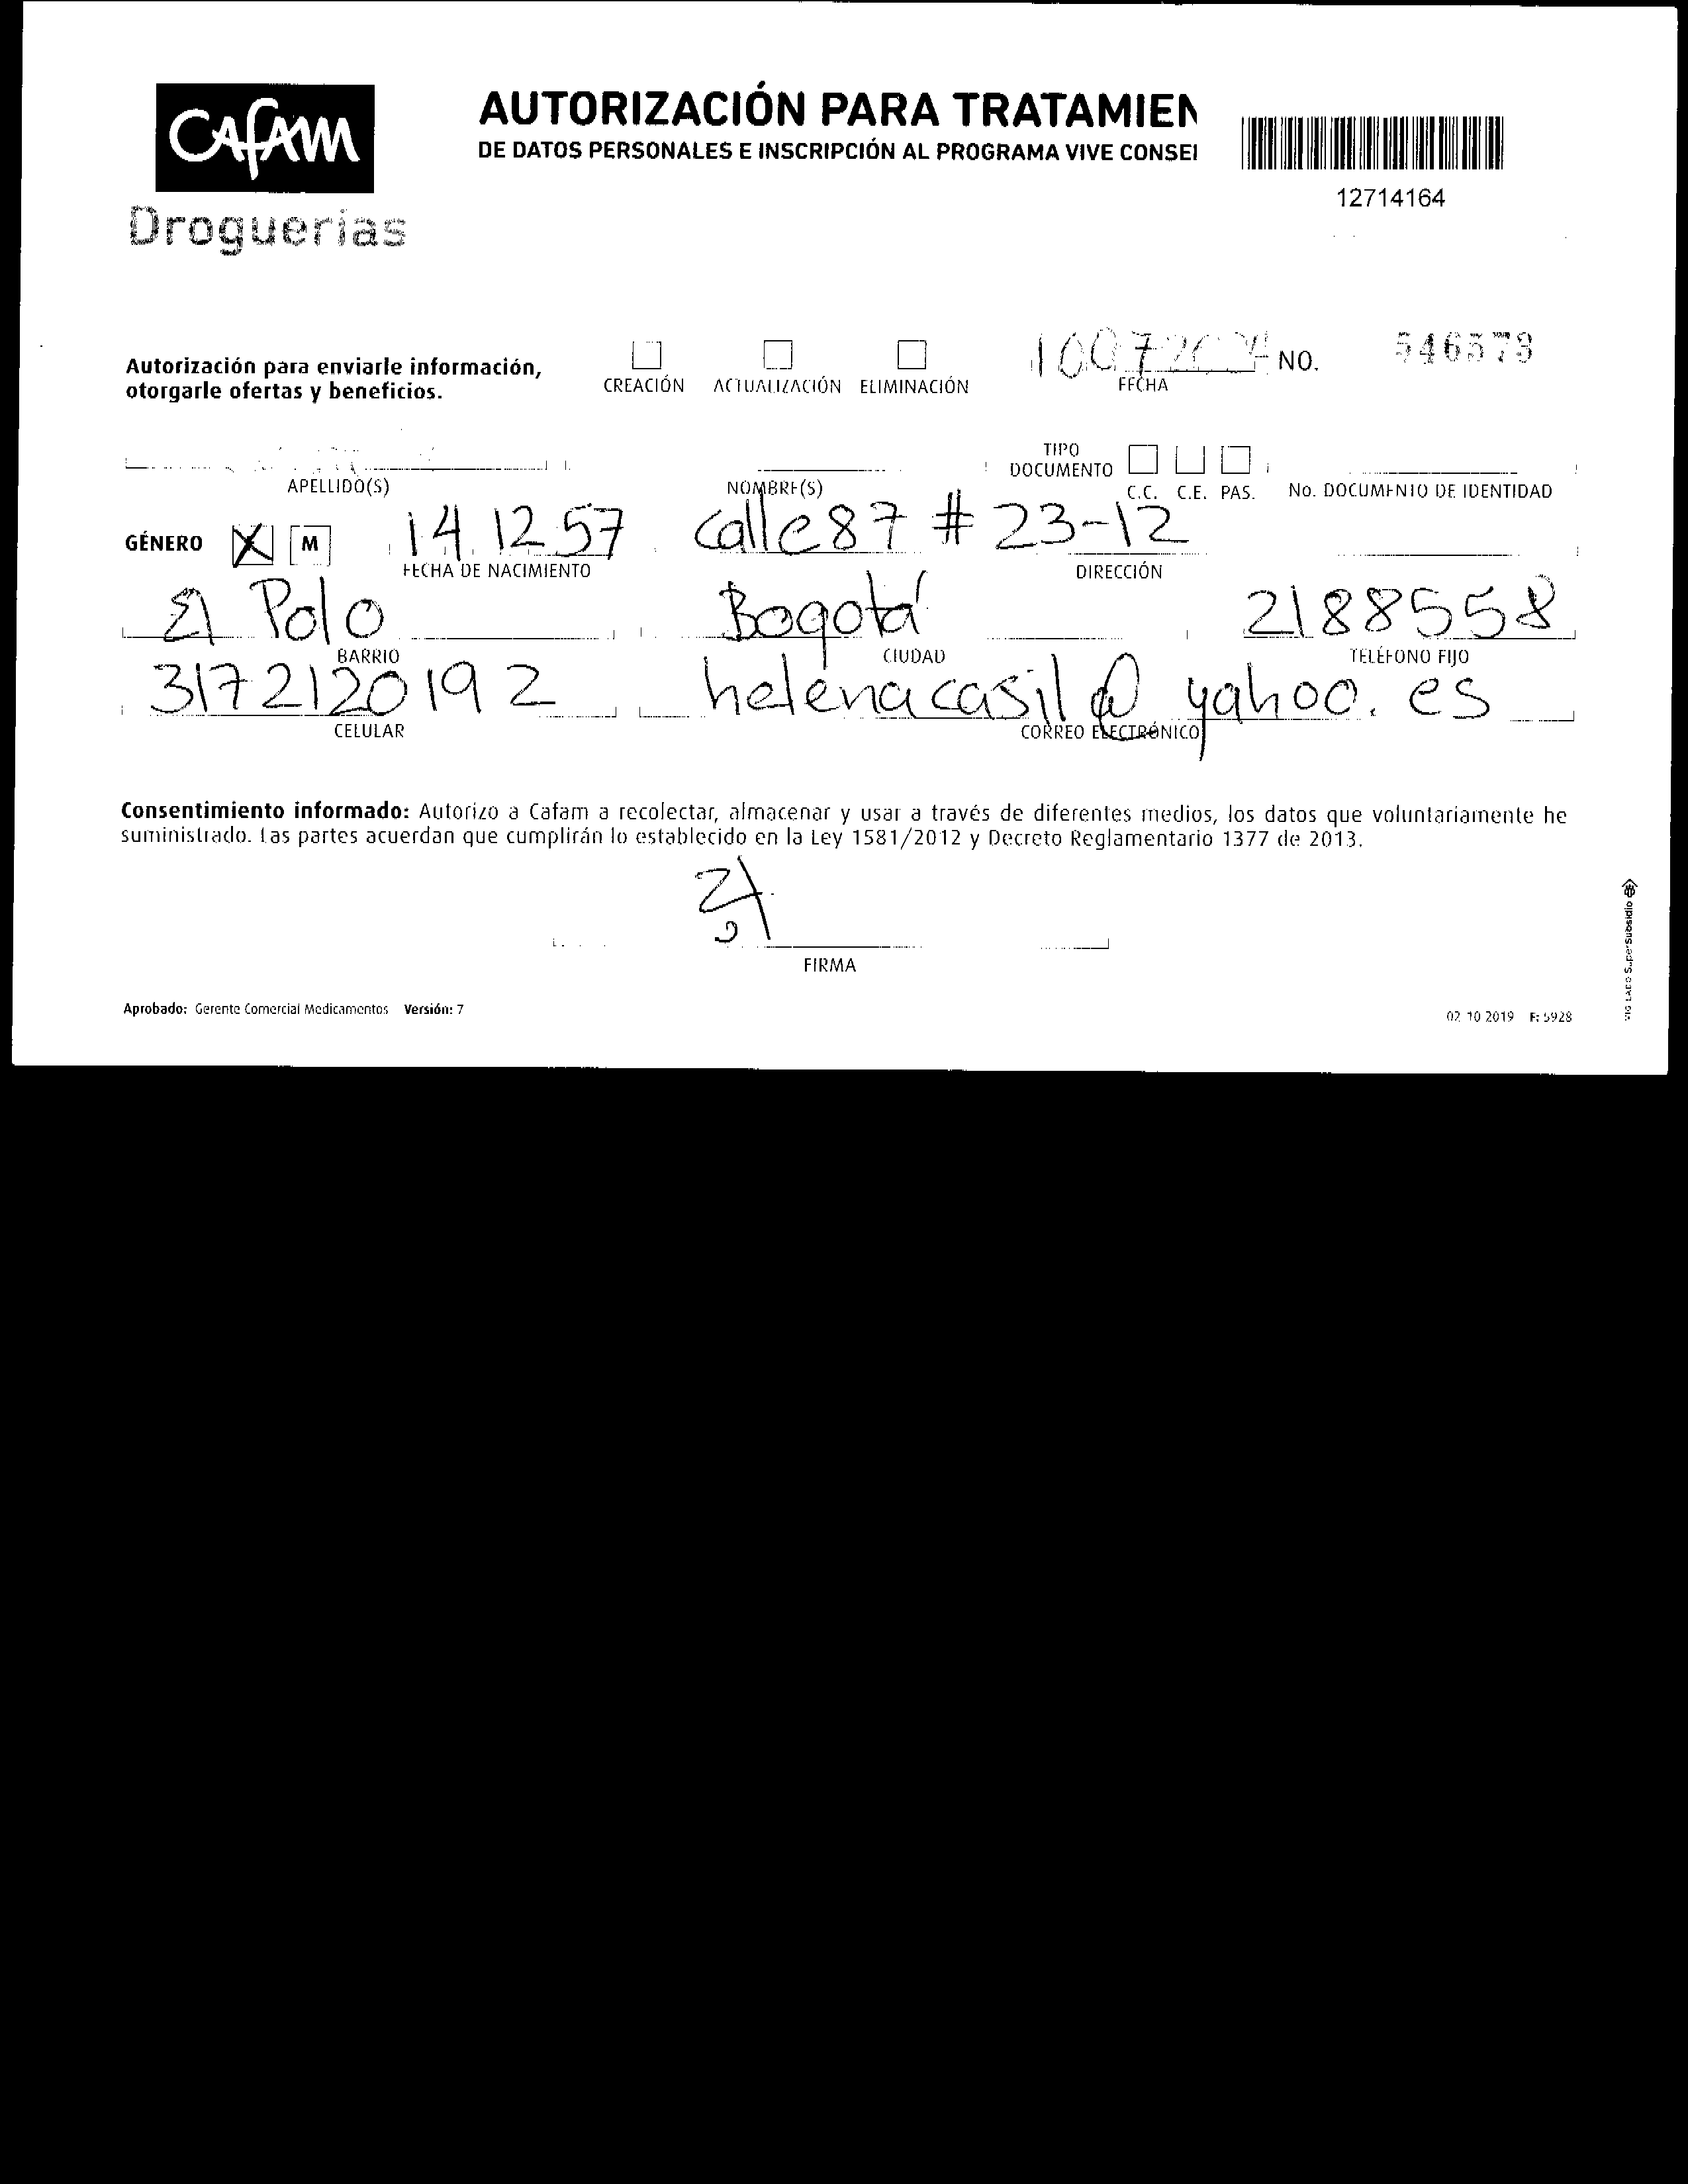 CAFAM
Droguerías
AUTORIZACIÓN PARA TRATAMIEN
DE DATOS PERSONALES E INSCRIPCIÓN AL PROGRAMA VIVE CONSEI
12714164
Autorización para enviarle información,
otorgarle ofertas y beneficios.
CREACIÓN ACTUALIZACIÓN ELIMINACIÓN
10072024
FECHA
NO. 546573
APELLIDO(S)
NOMBRE(S)
TIPO
DOCUMENTO
C.C. C.E. PAS.
No. DOCUMENTO DE IDENTIDAD
GÉNERO M
14 12 57
FECHA DE NACIMIENTO
Calle 87 # 23-12
DIRECCIÓN
El Polo
BARRIO
Bogotá
CIUDAD
2188558
TELÉFONO FIJO
3172120192
CELULAR
helenacasil@yahoo.es
CORREO ELECTRÓNICO
Consentimiento informado: Autorizo a Cafam a recolectar, almacenar y usar a través de diferentes medios, los datos que voluntariamente he
suministrado. Las partes acuerdan que cumplirán lo establecido en la Ley 1581/2012 y Decreto Reglamentario 1377 de 2013.
FIRMA
Aprobado: Gerente Comercial Medicamentos Versión: 7
02 10 2019 F: 5928
VIGILADO SuperSubsidio